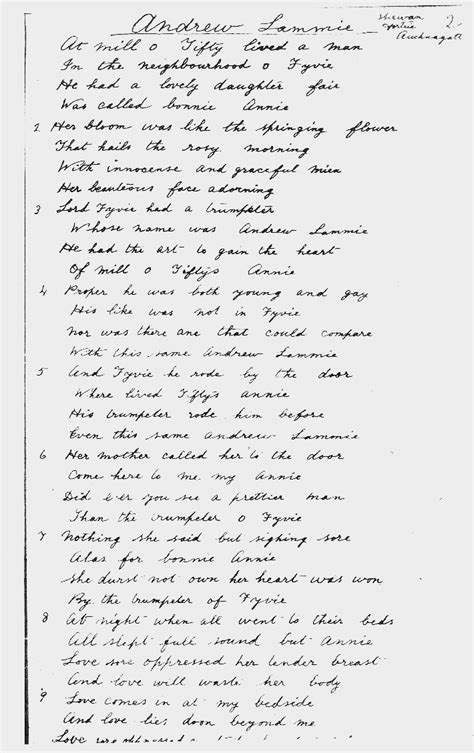 Andrew Lammie
2.
At mill o Tifty lived a man
In the neighbourhood o Fyvie
He had a lovely daughter fair
Was called bonnie Annie
2 Her bloom was like the springing flower
That hails the rosy morning
With innocense and graceful mien
Her beauteous face adorning
3 Lord Fyvie had a trumpeter
Whose name was Andrew Lammie
He had the art to gain the heart
Of mill o Tiftys Annie
4 Proper he was both young and gay
His like was not in Fyvie
Nor was there ane that could compare
With this same Andrew Lammie
5 And Fyvie he rode by the door
Where lived Tiftys Annie
His trumpeter rode him before
Even this same Andrew Lammie
6 Her mother called her to the door
Come here to me my Annie
Did ever you see a prettier man
Than the trumpeter o Fyvie
7 Nothing she said but sighing sore
Alas for bonnie Annie
She durst not own her heart was won
By the trumpeter of Fyvie
8 At night when all went to their beds
All slept full sound but Annie
Love sore oppressed her tender breast
And love will waste her body
9 Love comes in at my bedside
And love lies doon beyond me
Love